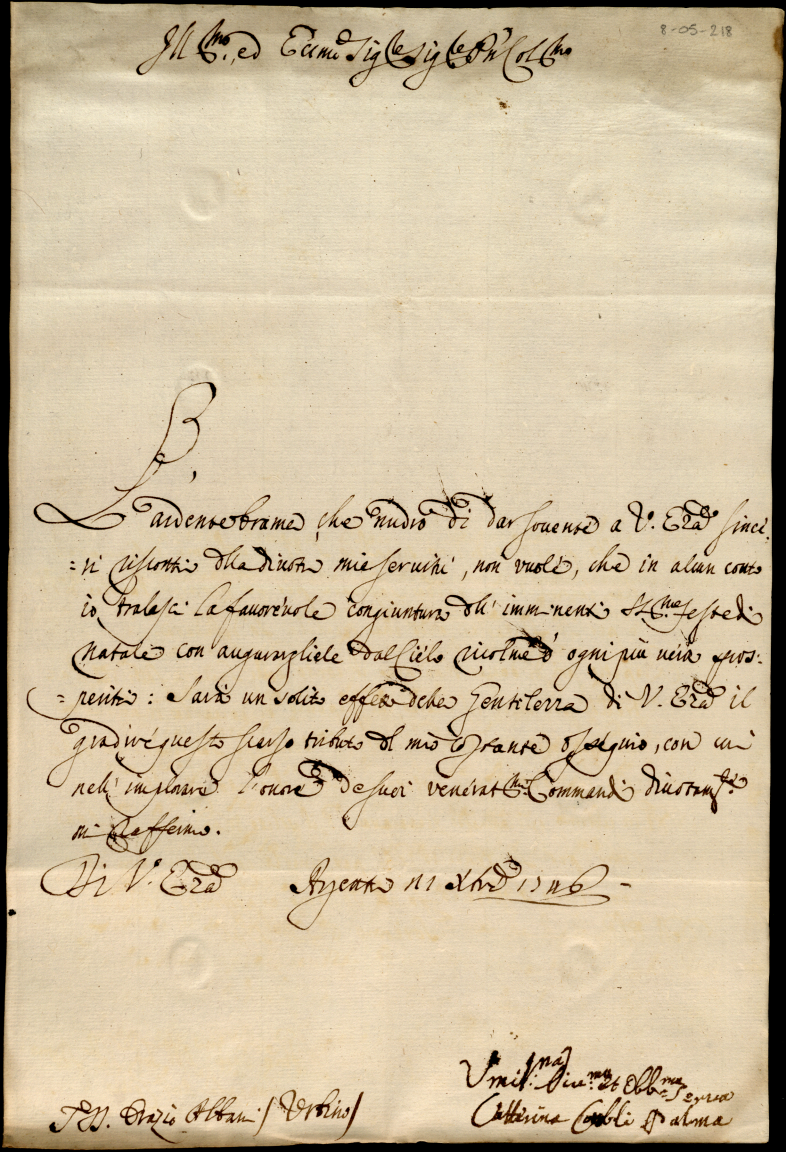 8-05-218
Ill.mo ed Ecc.mo Sig.re Sig.re P.ron Col.mo
L'ardente brama, che nudro di dar sovente a V. Ecc.a since=
=ri riscontri della divota mia servitù, non vuole, che in alcun conto
io tralasci la favorevole congiuntura dell'imminenti SS.me feste di
Natale con augurargliele dal Cielo ricolme d'ogni più vera pros:
=perità: Sarà un solito effetto della Gentilezza di V. Ecc.a il
gradire questo scarso tributo del mio costante ossequio, con cui
nell'implorare l'onore de suoi venerat.mi Commandi divotam.te
mi raffermo.
Di V. Ecc.a 11 Xbre 1746
Umil.ma Div.ma et Obb.ma Serva
Catterina Palma
D. Orazio Albani / Urbino /